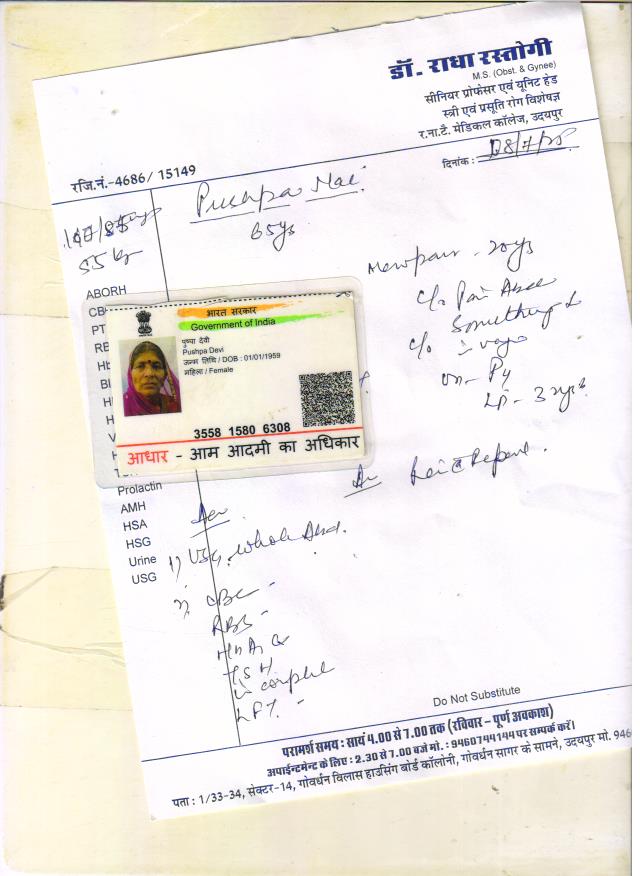 डॉ. राधा रस्तोगी
M.S. (Obst. & Gynee)
सीनियर प्रोफेसर एवं यूनिट हेड
स्त्री एवं प्रसूति रोग विशेषज्ञ
र.ना.टै. मेडिकल कॉलेज, उदयपुर
रजि.नं.-4686/ 15149
दिनांक :
Pushpa
65ys
55 kg
ABORH
CB
PT
RE
Hb
Bl
H
H
V
H
Prolactin
AMH
HSA
HSG
Urine
USG
भारत सरकार
Government of India
पुष्पा देवी
Pushpa Devi
जन्म तिथि / DOB : 01/01/1959
महिला / Female
3558 1580 6308
आधार - आम आदमी का अधिकार
Menopause - 20ys
c/o Pain Abd
c/o Something
Adv
1) USG whole Abd.
2) CBC -
RBS -
HbA1c
TSH
LFT -
Do Not Substitute
परामर्श समय : सायं 4.00 से 7.00 तक (रविवार - पूर्ण अवकाश)
अपाईन्टमेन्ट के लिए : 2.30 से 7.00 बजे मो. : 9460744144 पर सम्पर्क करें।
पता : 1/33-34, सेक्टर-14, गोवर्धन विलास हाउसिंग बोर्ड कॉलोनी, गोवर्धन सागर के सामने, उदयपुर मो. 946